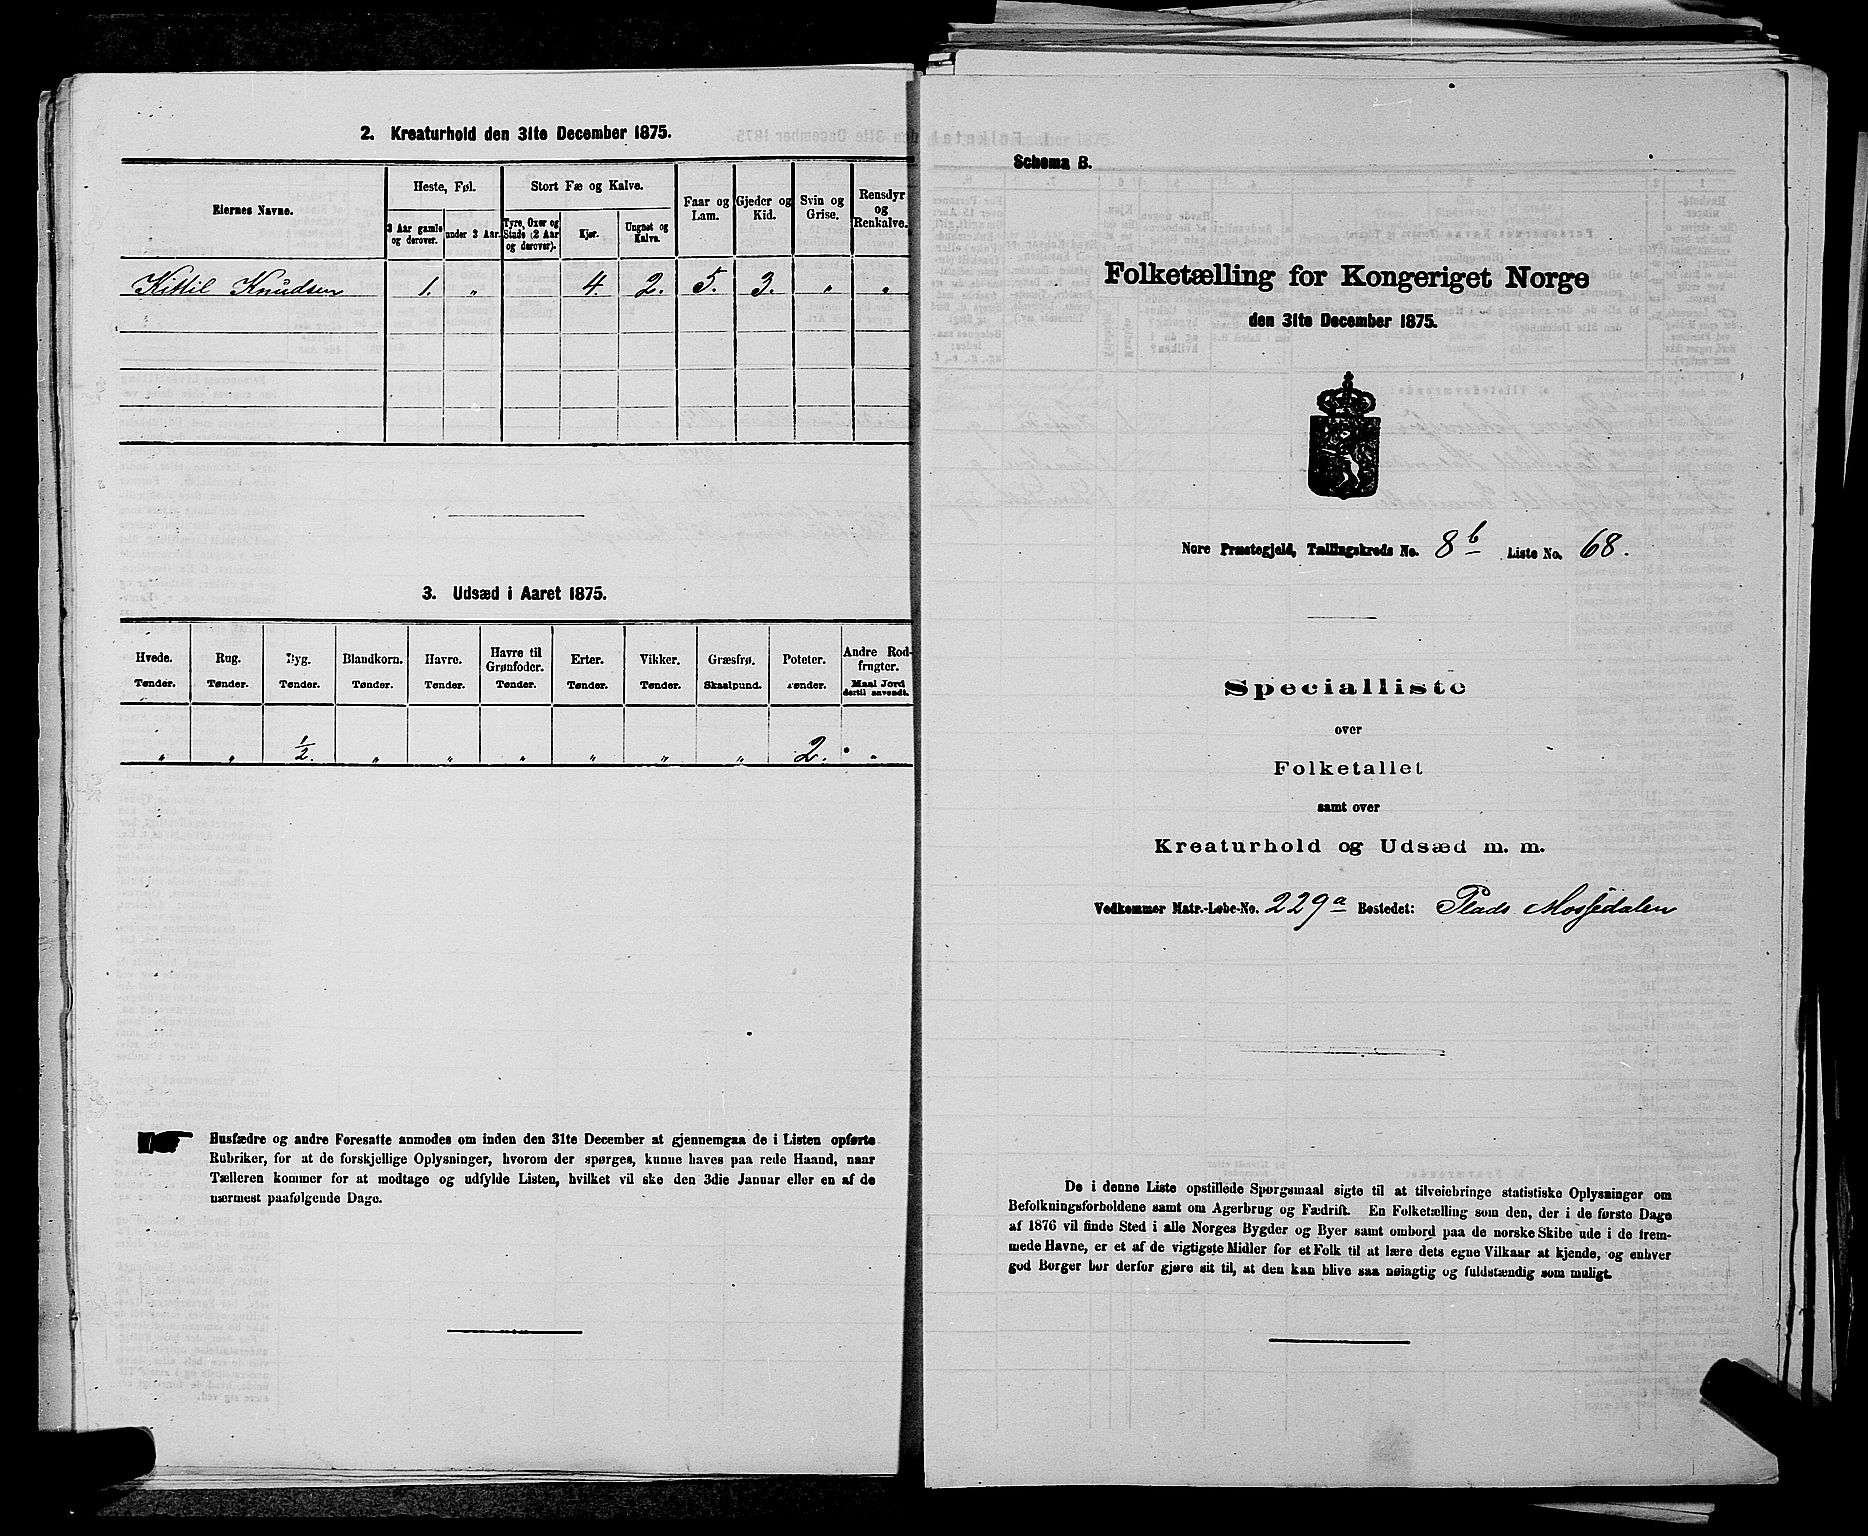 2. Kreaturhold den 31te December 1875.
Eiernes Navne.
Heste, Føl.
3 Aar gamle og derover.
under 3 Aar.
Stort Fæ og Kalve.
Tyre, Oxer og Stude (2 Aar og derover).
Kjør.
Ungnøt og Kalve.
Faar og Lam.
Gjeder og Kid.
Svin og Grise.
Rensdyr og Renkalve.
Kittil Knudsen 1. „ 4. 2. 5. 3. „ „
3. Udsæd i Aaret 1875.
Hvede. Rug. Byg. Blandkorn. Havre. Havre til Grønfoder. Erter. Vikker. Græsfrø. Poteter. Andre Rodfrugter.
Tønder. Tønder. Tønder. Tønder. Tønder. Tønder. Tønder. Tønder. Skaalpund. Tønder. Maal Jord dertil anvendt.
„ „ 1/2. „ „ „ „ „ „ 2. „
Husfædre og andre Foresatte anmodes om inden den 31te December at gjennemgaa de i Listen opførte
Rubriker, for at de forskjellige Oplysninger, hvorom der spørges, kunne haves paa rede Haand, naar
Tælleren kommer for at modtage og udfylde Listen, hvilket vil ske den 3die Januar eller en af de
nærmest paafølgende Dage.
Schema B.
Folketælling for Kongeriget Norge
den 31te December 1875.
Nore Præstegjeld, Tællingskreds No. 8b Liste No. 68.
Specialliste
over
Folketallet
samt over
Kreaturhold og Udsæd m. m.
Vedkommer Matr.-Løbe-No. 229a Bostedet: Plads Mossedalen
De i denne Liste opstillede Spørgsmaal sigte til at tilveiebringe statistiske Oplysninger om
Befolkningsforholdene samt om Agerbrug og Fædrift. En Folketælling som den, der i de første Dage
af 1876 vil finde Sted i alle Norges Bygder og Byer samt ombord paa de norske Skibe ude i de frem-
mede Havne, er et af de vigtigste Midler for et Folk til at lære dets egne Vilkaar at kjende, og enhver
god Borger bør derfor gjøre sit til, at den kan blive saa nøiagtig og fuldstændig som muligt.